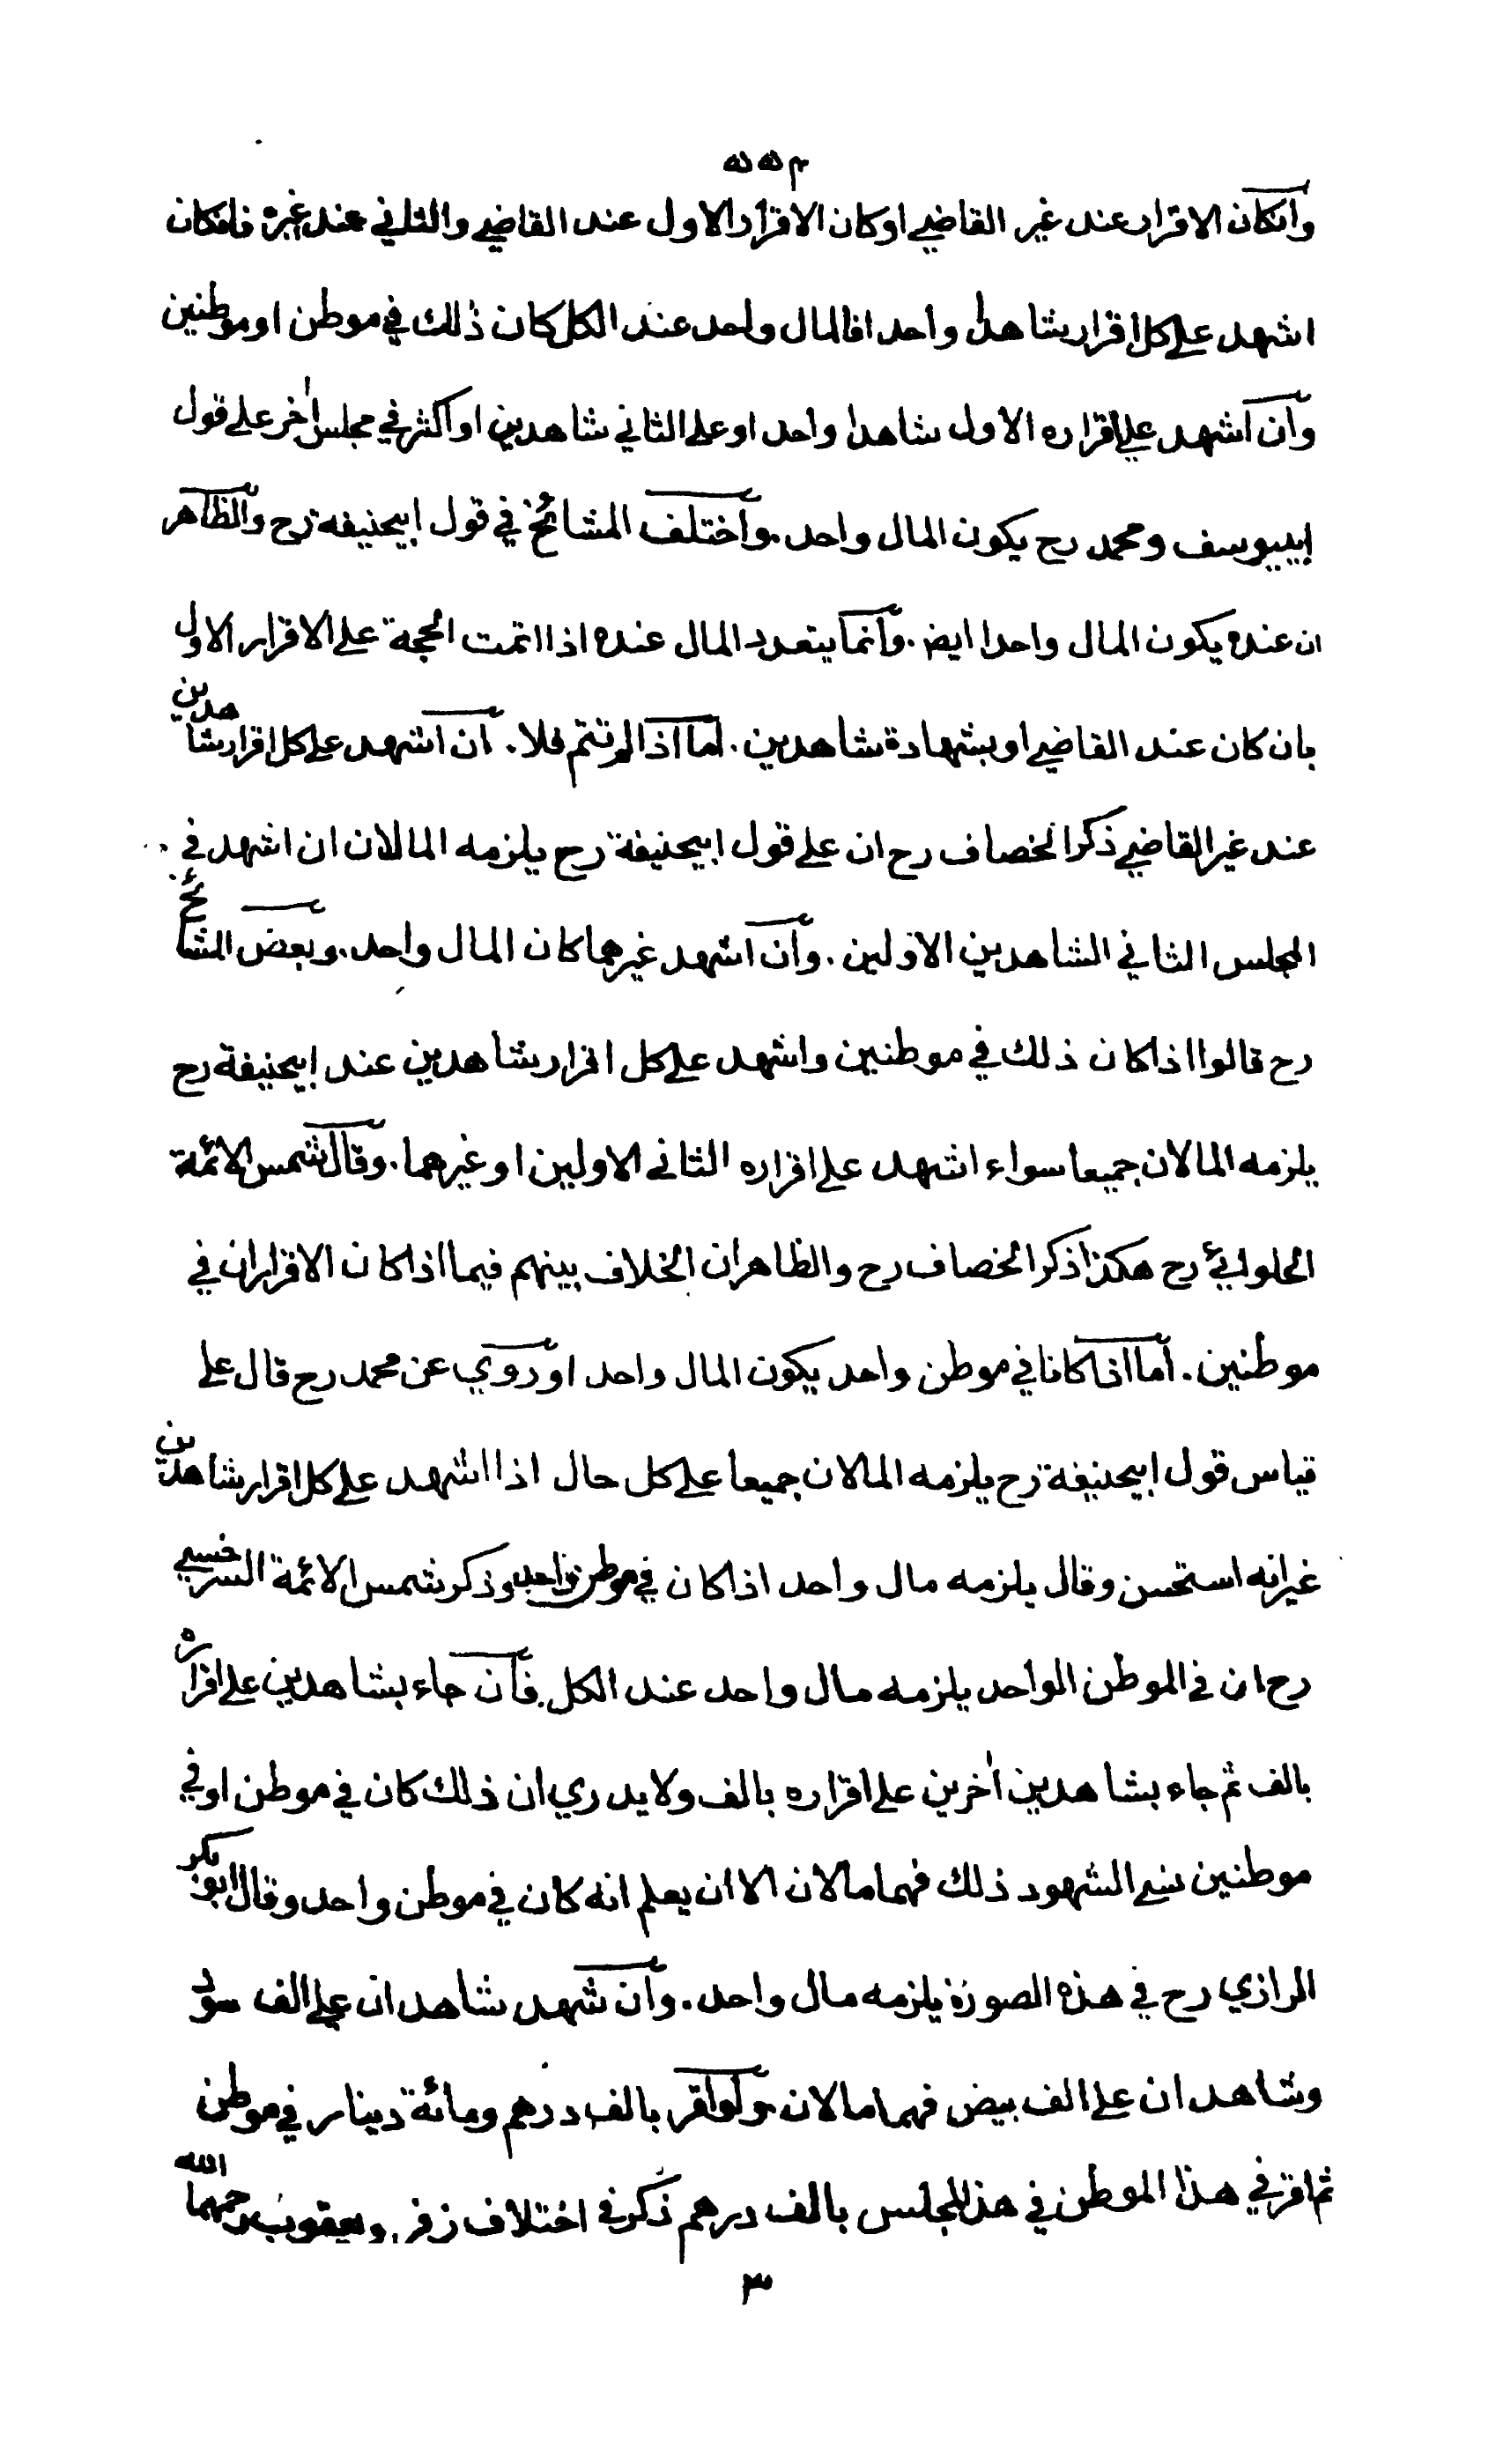 وانكان الاقرار عند غير القاضي او كان الاقرار الاول عند القاضي والثاني عند غيره فانكان
اشهد على كل اقرار شاهدا واحدا فالمال واحد عند الكل كان ذلك في موطن او موطنين
وان اشهد على اقراره الاول شاهدا واحدا وعلى الثاني شاهدين او اكثر في مجلس اٰخر على قول
ابييوسف ومحمد رح يكون المال واحد. واختلف المشائخ في قول ابيحنيفة رح والظاهر
ان عنده يكون المال واحدا ايضا. وانما يتعدد المال عنده اذا اتمت الحجة على الاقرار الاول
بان كان عند القاضي او بشهادة شاهدين. اما اذا لم تتم فلا. ان اشهد على كل اقرار شاهدين
عند غير القاضي ذكر الخصاف رح ان على قول ابيحنيفة رح يلزمه المالان ان اشهد في
المجلس الثاني الشاهدين الاولين. وان اشهد غيرهما كان المال واحد. وبعض المشائخ
رح قالوا اذا كان ذلك في موطنين واشهد على كل اقرار شاهدين عند ابيحنيفة رح
يلزمه المالان جميعا سواء اشهد على اقراره الثاني الاولين او غيرهما. وقال شمس الائمة
الحلوائي رح هكذا ذكر الخصاف رح والظاهر ان الخلاف بينهم فيما اذا كان الاقراران في
موطنين. اما اذا كانا في موطن واحد يكون المال واحدا وروي عن محمد رح قال على
قياس قول ابيحنيفة رح يلزمه المالان جميعا على كل حال اذا اشهد على كل اقرار شاهدين
غير انه استحسن وقال يلزمه مال واحد اذا كان في موطن واحد وذكر شمس الائمة السرخسي
رح ان في الموطن الواحد يلزمه مال واحد عند الكل. فان جاء بشاهدين على اقراره
بالف ثم جاء بشاهدين اٰخرين على اقراره بالف ولا يدري ان ذلك كان في موطن او في
موطنين نسي الشهود ذلك فهما مالان الا ان يعلم انه كان في موطن واحد وقال ابو بكر
الرازي رح في هذه الصورة يلزمه مال واحد. وان شهد شاهدان على الف سود
وشاهدان على الف بيض فهما مالان. ولو اقر بالف درهم ومائة دينار في موطن
ثم اقر في هذا الموطن في هذا المجلس بالف درهم ذكر في اختلاف زفر ويعقوب رحمهما الله
٣